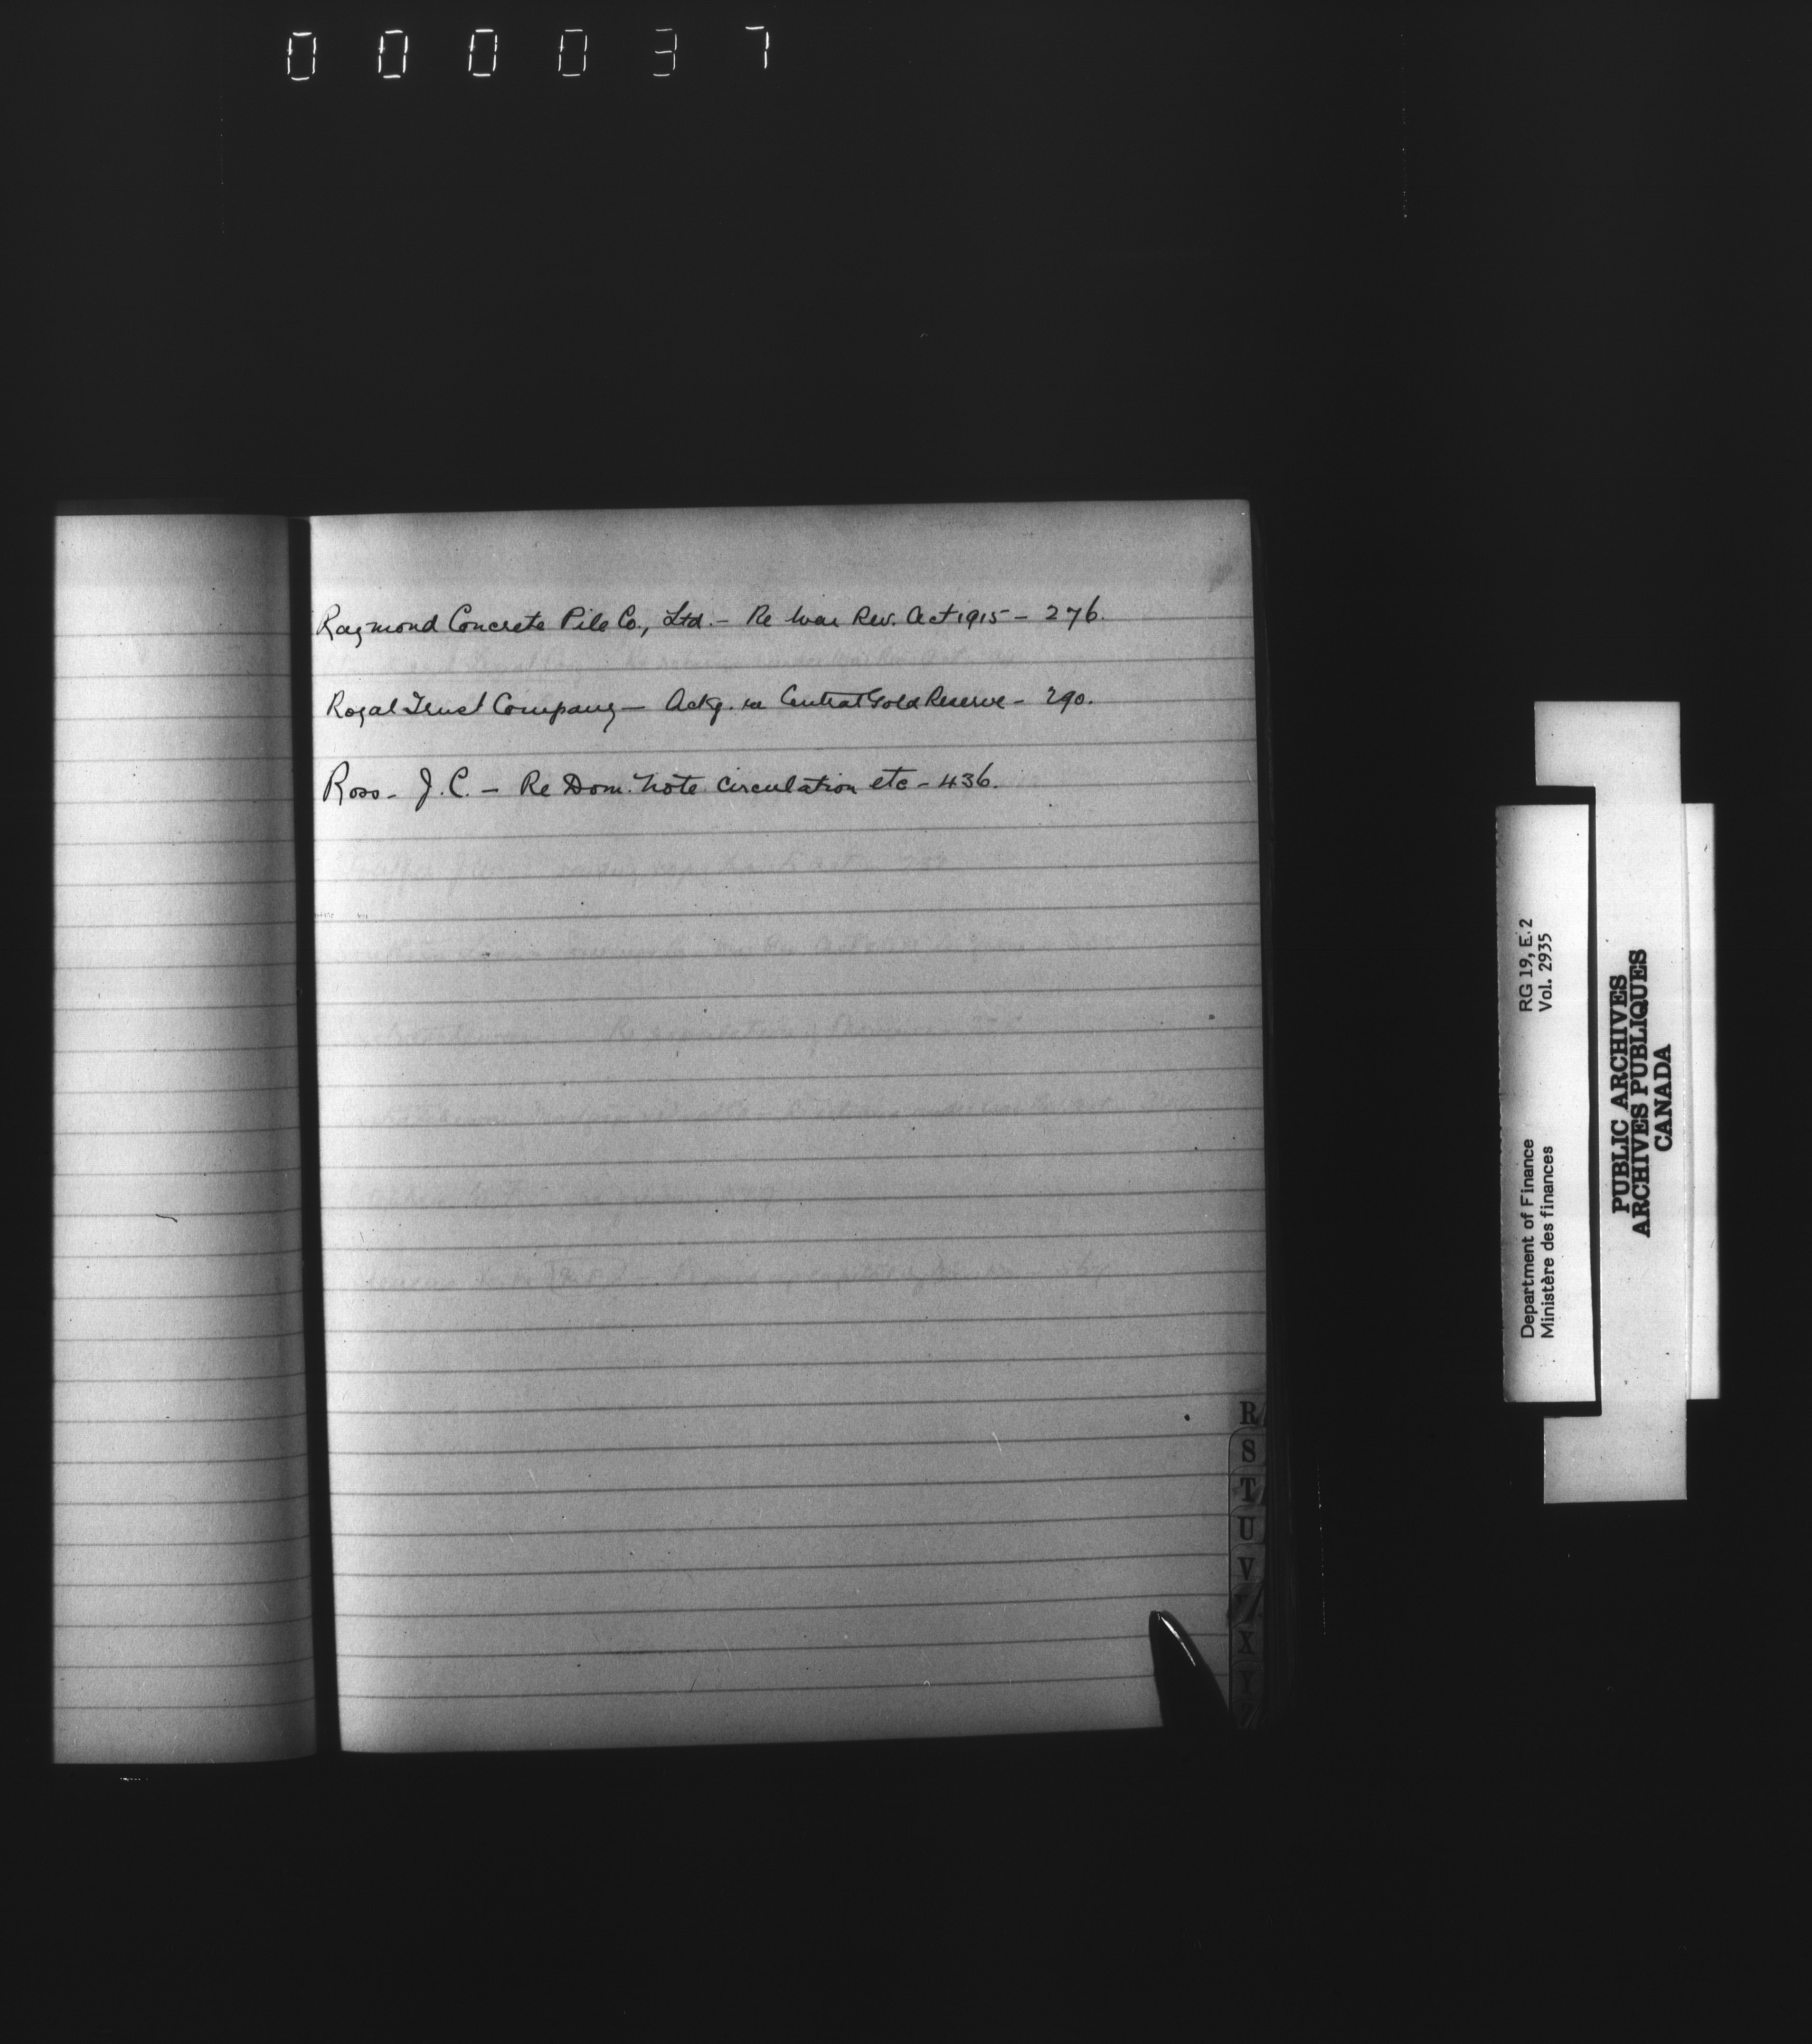 0 0 0 0 3 7
Raymond Concrete Pile Co., Ltd. - Re War Rev. Act 1915 - 276.
Royal Trust Company - Ackg. re Central Gold Reserve - 290.
Ross - J. C. - Re Dom. Note Circulation etc - 436.
R
S
T
U
V
X
Y
Department of Finance RG 19, E. 2
Ministère des finances Vol. 2935
PUBLIC ARCHIVES
ARCHIVES PUBLIQUES
CANADA